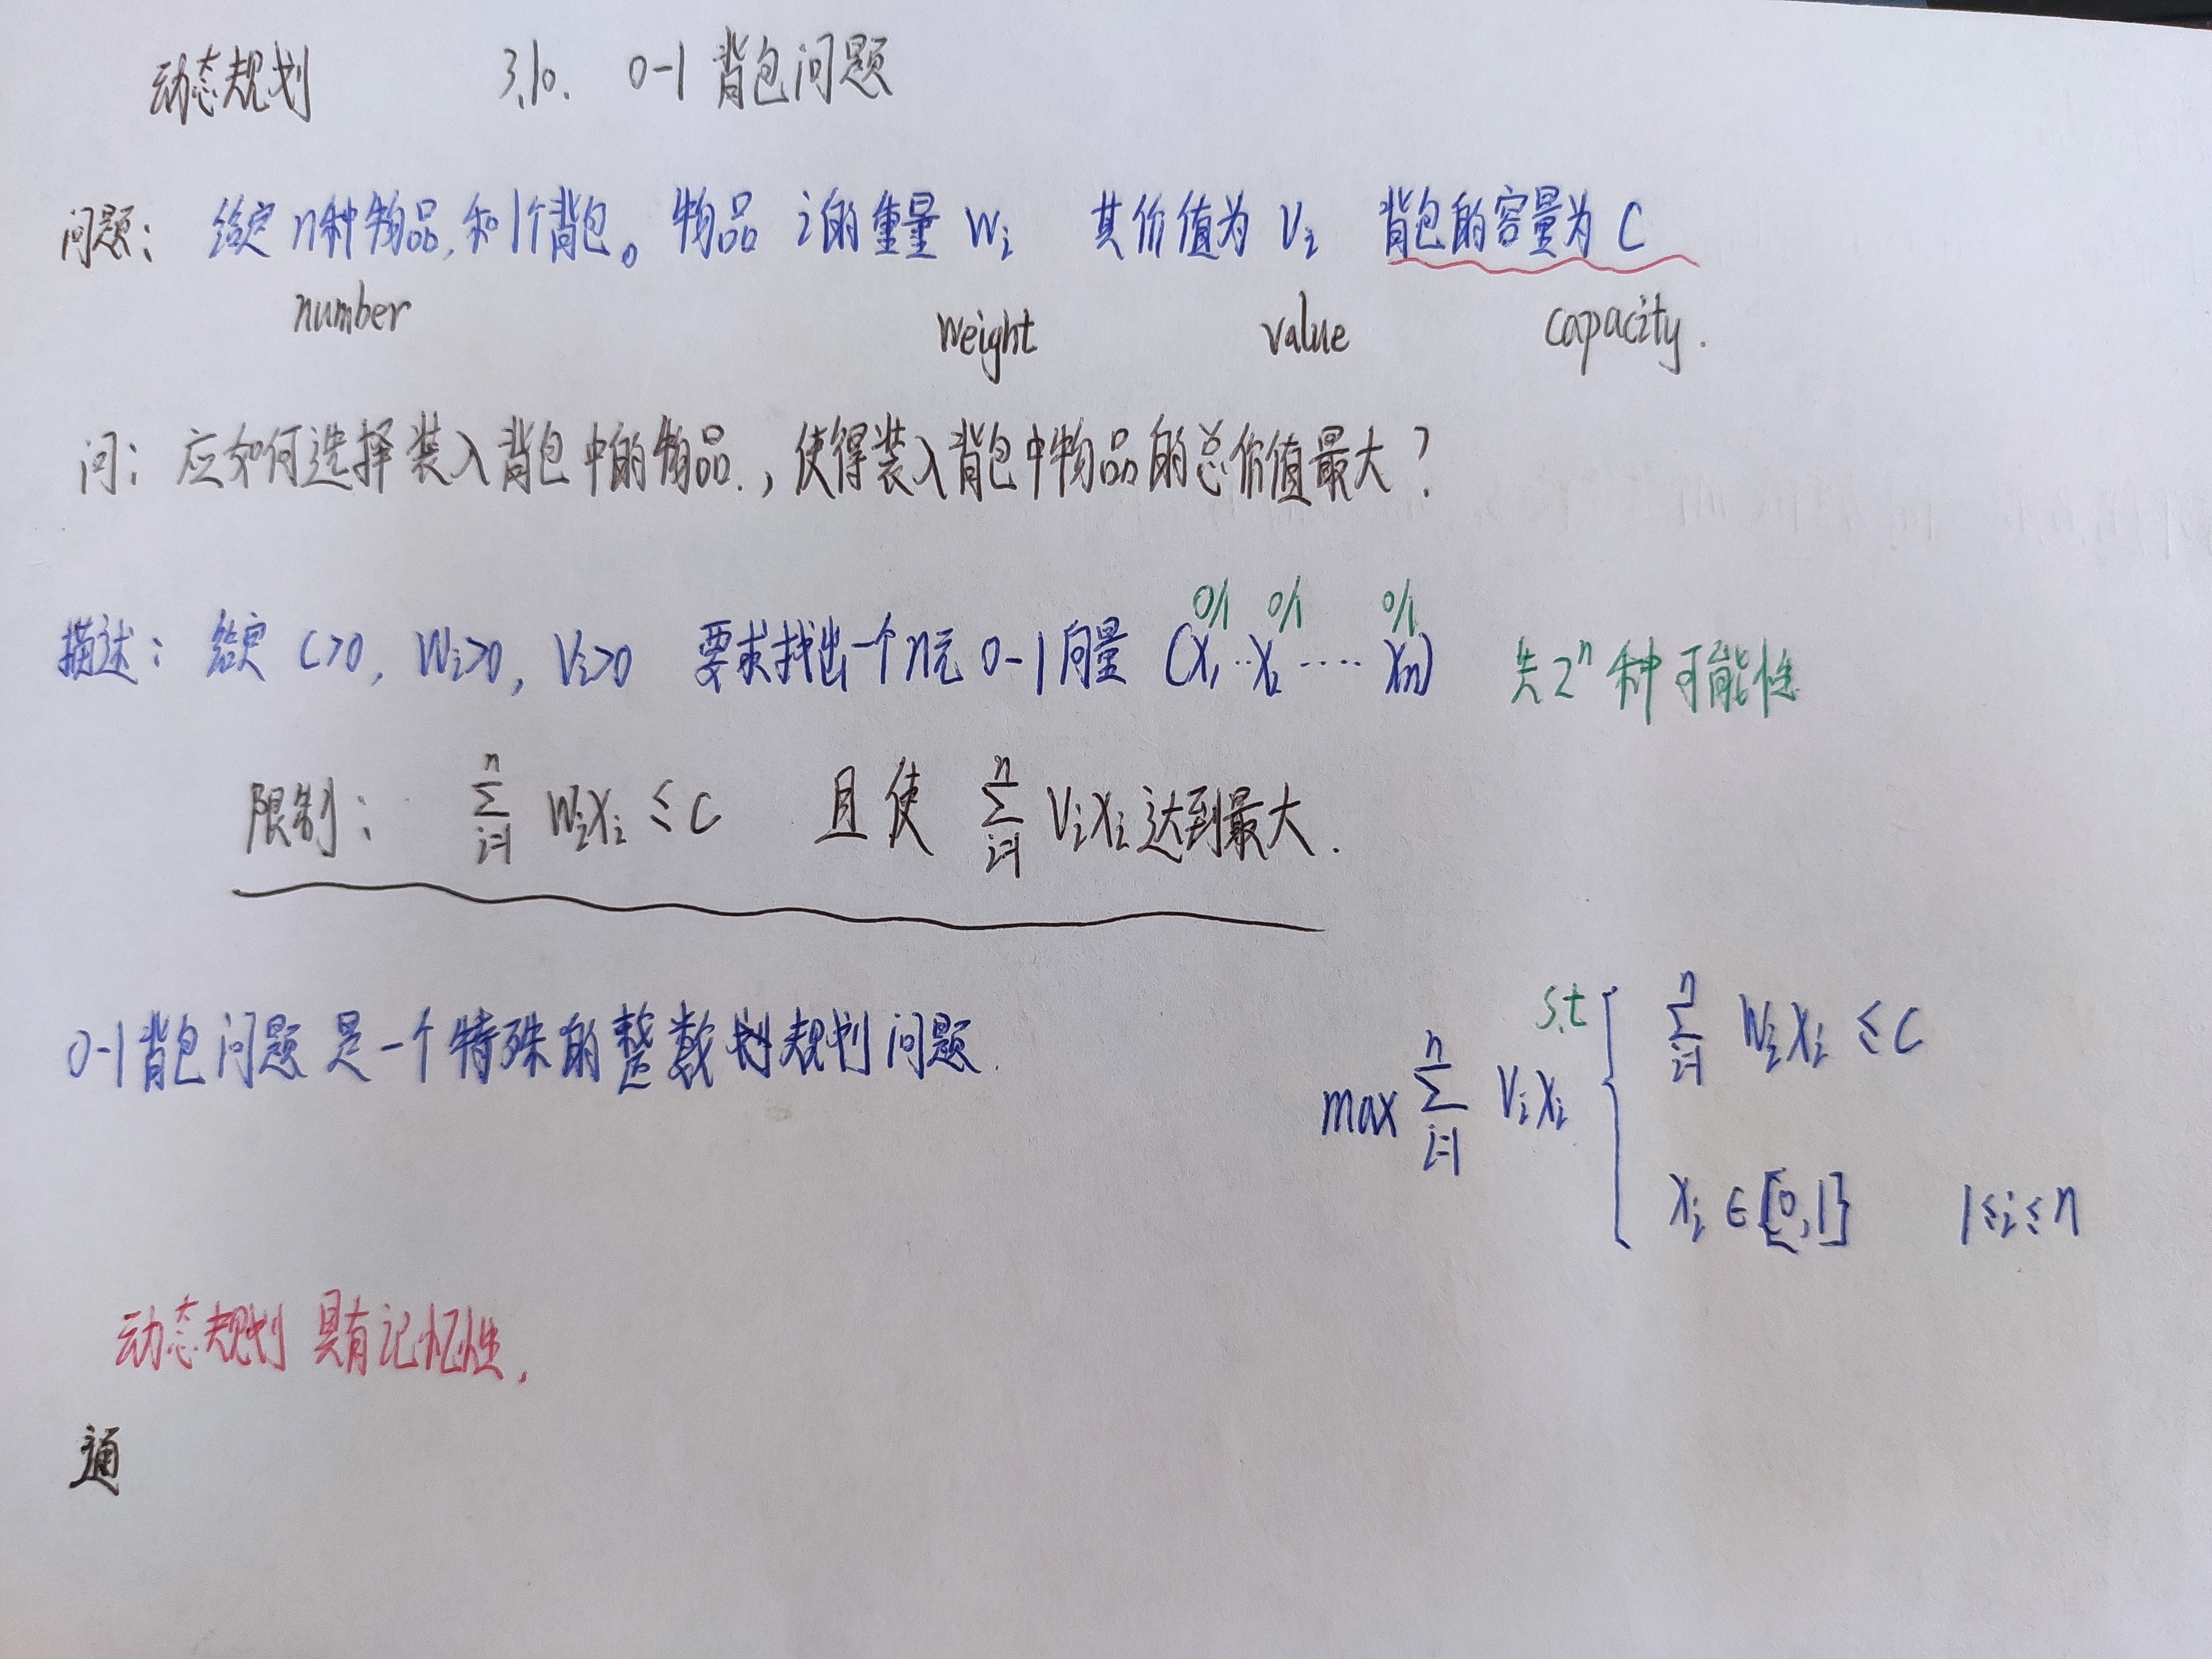 动态规划 3.10. 0-1 背包问题
问题: 给定 n种物品,和1个背包。物品 i的重量 Wi 其价值为 Vi 背包的容量为 C
number weight value capacity.
问: 应如何选择装入背包中的物品.,使得装入背包中物品的总价值最大?
0/1 0/1 0/1
描述: 给定 C>0, Wi>0, Vi>0 要求找出一个n元 0-1向量 (X1..X2 .... Xn) 共2^n种可能性
限制: ∑_{i=1}^{n} WiXi ≤ C 且使 ∑_{i=1}^{n} ViXi 达到最大.
0-1背包问题 是一个特殊的整数规划问题.
max ∑_{i=1}^{n} ViXi s.t { ∑_{i=1}^{n} WiXi ≤ C
Xi ∈ {0,1} 1≤i≤n
动态规划 具有记忆性.
通